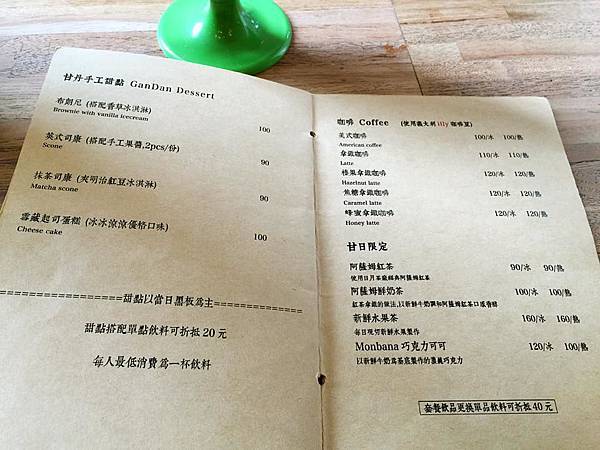 甘丹手工甜點 GanDan Dessert
布朗尼 (搭配香草冰淇淋) 100
Brownie with vanilla icecream
英式司康 (搭配手工果醬,2pcs/份) 90
Scone
抹茶司康 (夾明治紅豆冰淇淋) 90
Matcha scone
雪藏起司蛋糕 (冰冰涼涼優格口味) 100
Cheese cake
===============甜點以當日黑板為主===============
甜點搭配單點飲料可折抵 20 元
每人最低消費為一杯飲料
咖啡 Coffee (使用義大利 illy 咖啡豆)
美式咖啡 100/冰 100/熱
American coffee
拿鐵咖啡 110/冰 110/熱
Latte
榛果拿鐵咖啡 120/冰 120/熱
Hazelnut latte
焦糖拿鐵咖啡 120/冰 120/熱
Caramel latte
蜂蜜拿鐵咖啡 120/冰 120/熱
Honey latte
甘日限定
阿薩姆紅茶 90/冰 90/熱
使用日月茶廠經典阿薩姆紅茶
阿薩姆鮮奶茶 100/冰 100/熱
紅茶拿鐵的做法,以新鮮牛奶調和阿薩姆紅茶口感香醇
新鮮水果茶 160/冰 160/熱
每日現切新鮮水果製作
Monbana 巧克力可可 120/冰 100/熱
以新鮮牛奶為基底製作的濃純巧克力
套餐飲品更換單品飲料可折抵 40 元